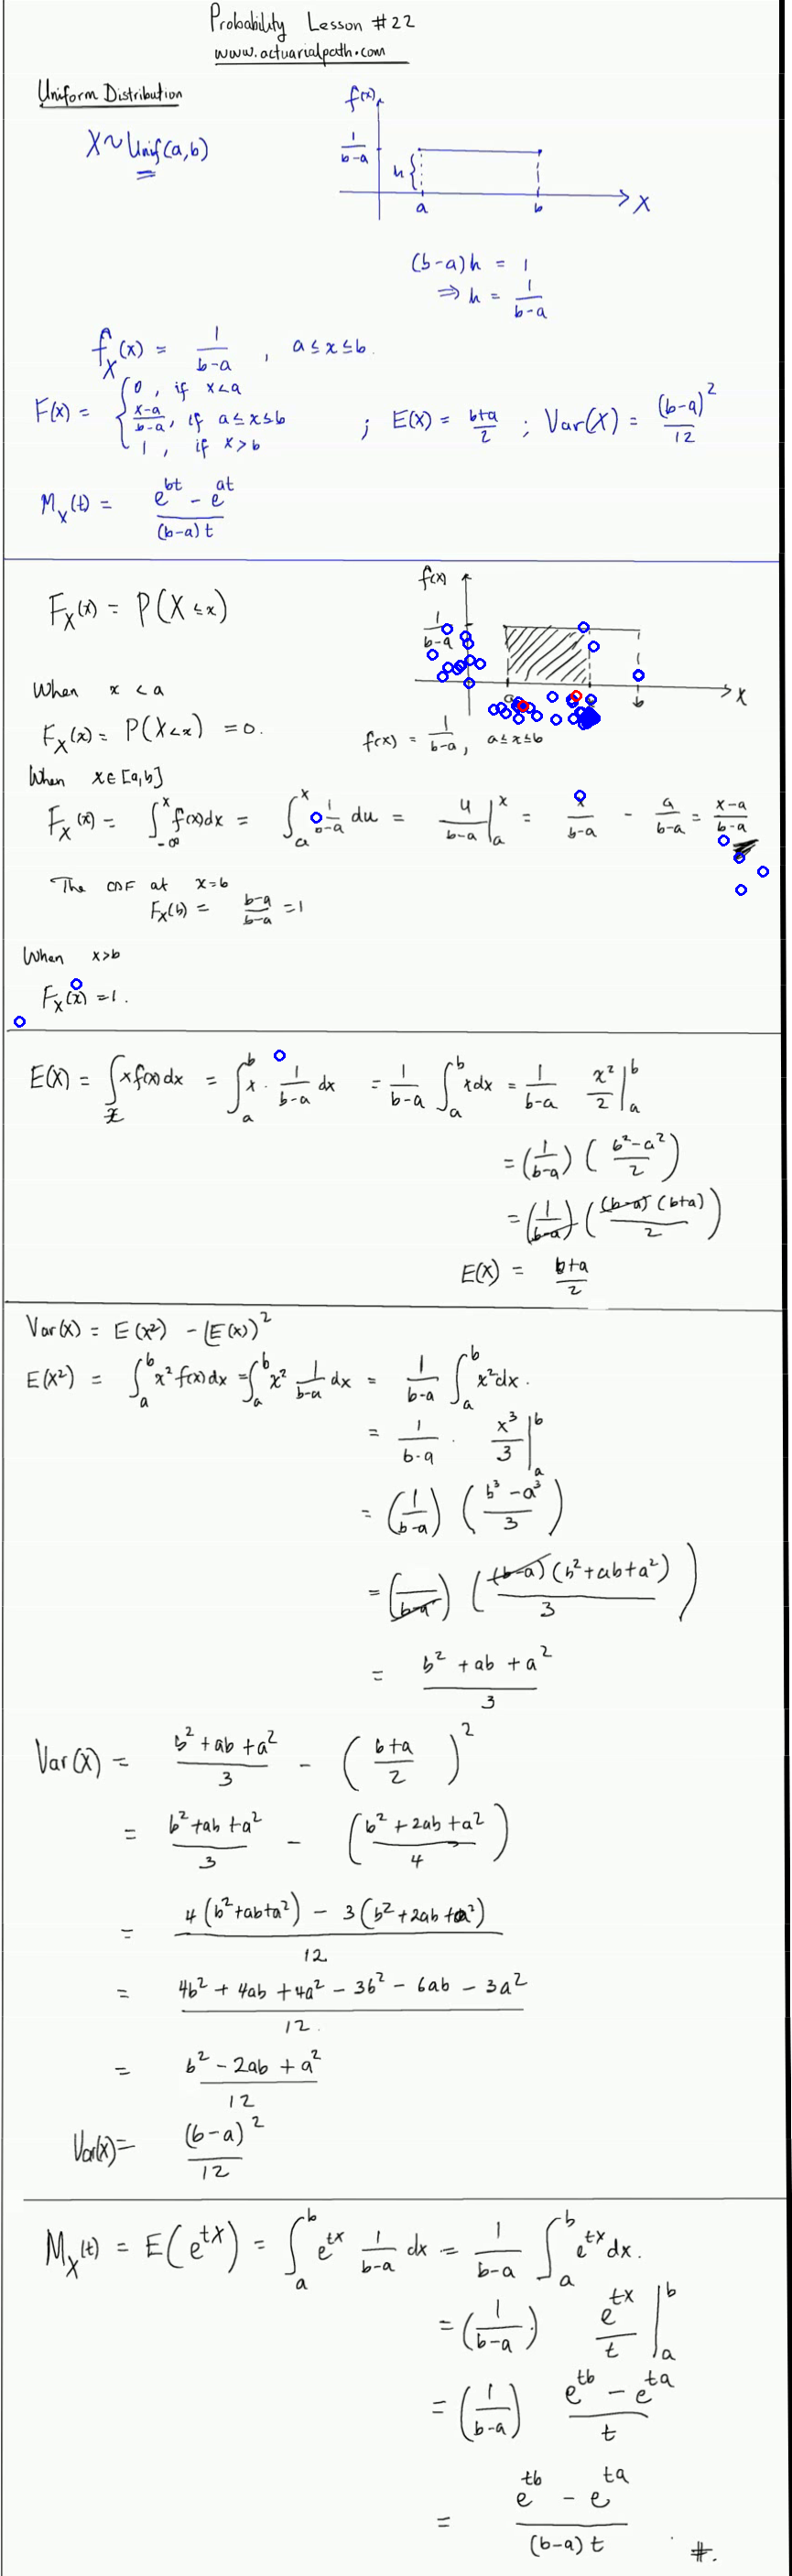 Probability Lesson #22
www.actuarialpath.com
Uniform Distribution
X ~ Unif(a,b)
f(x)
1/(b-a)
h{
a b X
(b-a)h = 1
⇒ h = 1/(b-a)
f_X(x) = 1/(b-a) , a ≤ x ≤ b.
F(x) = { 0 , if x<a
(x-a)/(b-a), if a ≤ x ≤ b
1 , if x>b
; E(X) = (b+a)/2 ; Var(X) = (b-a)^2/12
M_X(t) = (e^bt - e^at)/((b-a)t)
F_X(x) = P(X ≤ x)
f(x)
1/(b-a)
a b X
When x < a
F_X(x) = P(X<x) = 0.
f(x) = 1/(b-a), a ≤ x ≤ b
When x ∈ [a,b]
F_X(x) = ∫_{-∞}^x f(x)dx = ∫_a^x 1/(b-a) du = u/(b-a) |_a^x = x/(b-a) - a/(b-a) = (x-a)/(b-a)
The CDF at x=b
F_X(b) = (b-a)/(b-a) = 1
When x>b
F_X(x) = 1.
E(X) = ∫_x x f(x) dx = ∫_a^b x · 1/(b-a) dx = 1/(b-a) ∫_a^b x dx = 1/(b-a) x^2/2 |_a^b
= (1/(b-a)) ((b^2-a^2)/2)
= (1/(b-a)) ((b-a)(b+a)/2)
E(X) = (b+a)/2
Var(X) = E(X^2) - (E(X))^2
E(X^2) = ∫_a^b x^2 f(x) dx = ∫_a^b x^2 1/(b-a) dx = 1/(b-a) ∫_a^b x^2 dx.
= 1/(b-a) · x^3/3 |_a^b
= (1/(b-a)) ((b^3 - a^3)/3)
= (1/(b-a)) ((b-a)(b^2+ab+a^2)/3)
= (b^2 + ab + a^2)/3
Var(X) = (b^2+ab+a^2)/3 - ((b+a)/2)^2
= (b^2+ab+a^2)/3 - ((b^2+2ab+a^2)/4)
= (4(b^2+ab+a^2) - 3(b^2+2ab+a^2))/12
= (4b^2 + 4ab + 4a^2 - 3b^2 - 6ab - 3a^2)/12.
= (b^2 - 2ab + a^2)/12
Var(X) = (b-a)^2/12
M_X(t) = E(e^tX) = ∫_a^b e^tx 1/(b-a) dx = 1/(b-a) ∫_a^b e^tx dx.
= (1/(b-a)) e^tx/t |_a^b
= (1/(b-a)) (e^tb - e^ta)/t
= (e^tb - e^ta)/((b-a)t) #.